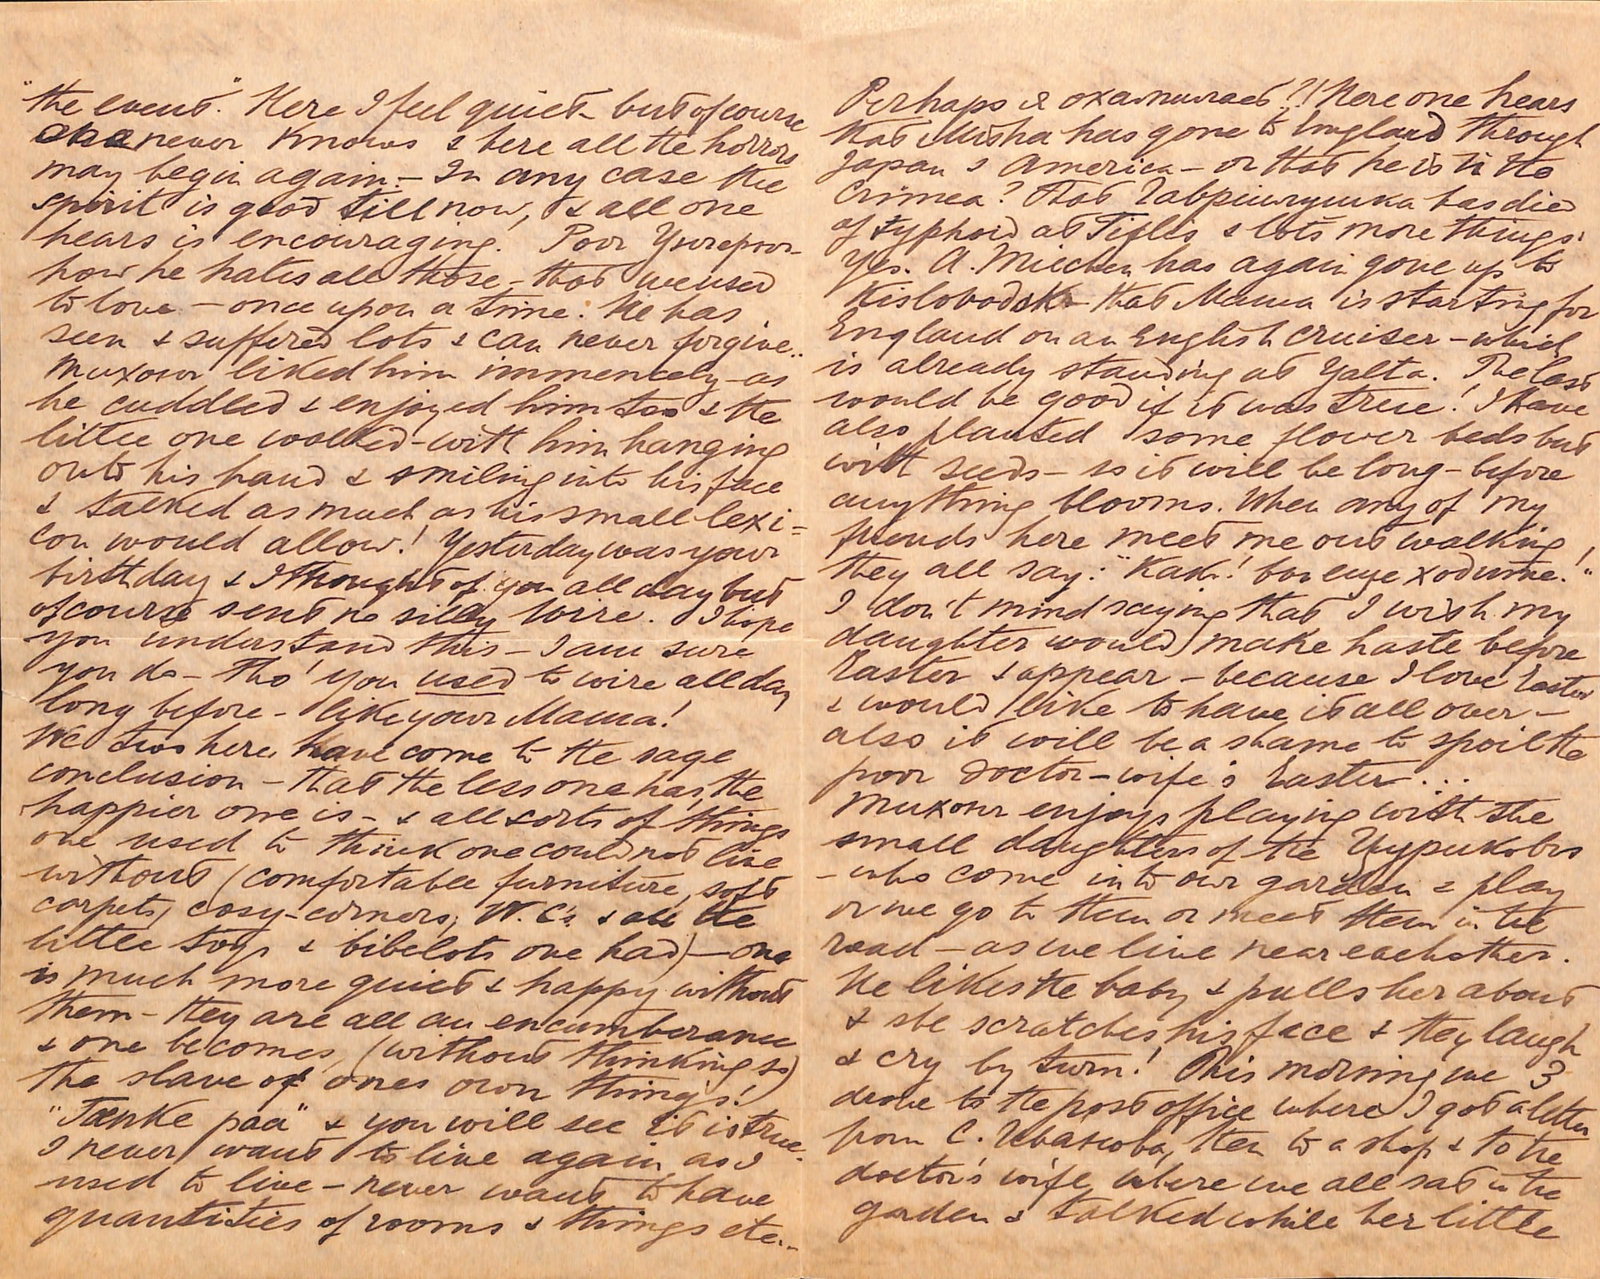 "the event." Here I feel quiet - but of course
one never knows & here all the horrors
may begin again. - In any case the
spirit is good till now, & all one
hears is encouraging. Poor
how he hates all those - that we used
to love - once upon a time. He has
seen & suffered lots & can never forgive..
Тихон liked him immencely - as
he cuddled & enjoyed him too & the
little one walked - with him hanging
onto his hand & smiling into his face
& talked as much as his small lexi=
con would allow! Yesterday was your
birthday & I thought of you all day but
of course sent no silly wire. I hope
you understand this - I am sure
you do - tho' you used to wire all day
long before - like your Mama!
We two here have come to the sage
conclusion - that the less one has, the
happier one is - & all sorts of things
one used to think one could not live
without (comfortable furniture, soft
carpets, cosy-corners, W.C's. & all the
little toys & bibelots one had) - one
is much more quiet & happy without
them - they are all an encumberance
& one becomes, (without thinking so)
the slave of ones own things!
"Tænke paa" & you will see it is true.
I never want to live again as I
used to live - never want to have
quantities of rooms & things etc...
Perhaps я охамилась?! Here one hears
that Misha has gone to England through
Japan & America - or that he is in the
Crimea? that Гавриилушка has died
of typhoid at Tiflis & lots more things:
Yes. A. Miechen has again gone up to
Kislovodsk - that Mama is starting for
England on an English cruiser - which
is already standing at Yalta. The last
would be good if it was true! I have
also planted some flower beds but
with seeds - so it will be long - before
anything blooms. When any of my
friends here meet me out walking,
they all say: "Какъ! вы еще ходите!"
I don't mind saying that I wish my
daughter would make haste before
Easter & appear - because I love Easter
& would like to have it all over -
also it will be a shame to spoil the
poor doctor-wife's Easter...
Тихон enjoys playing with the
small daughters of the
- who come into our garden & play
or we go to them or meet them in the
road - as we live near eachother.
He likes the baby & pulls her about
& she scratches his face & they laugh
& cry by turn! This morning we 3
drove to the post office where I got a letter
from С. Иванова, then to a shop & to the
doctor's wife, where we all sat in the
garden & talked while her little